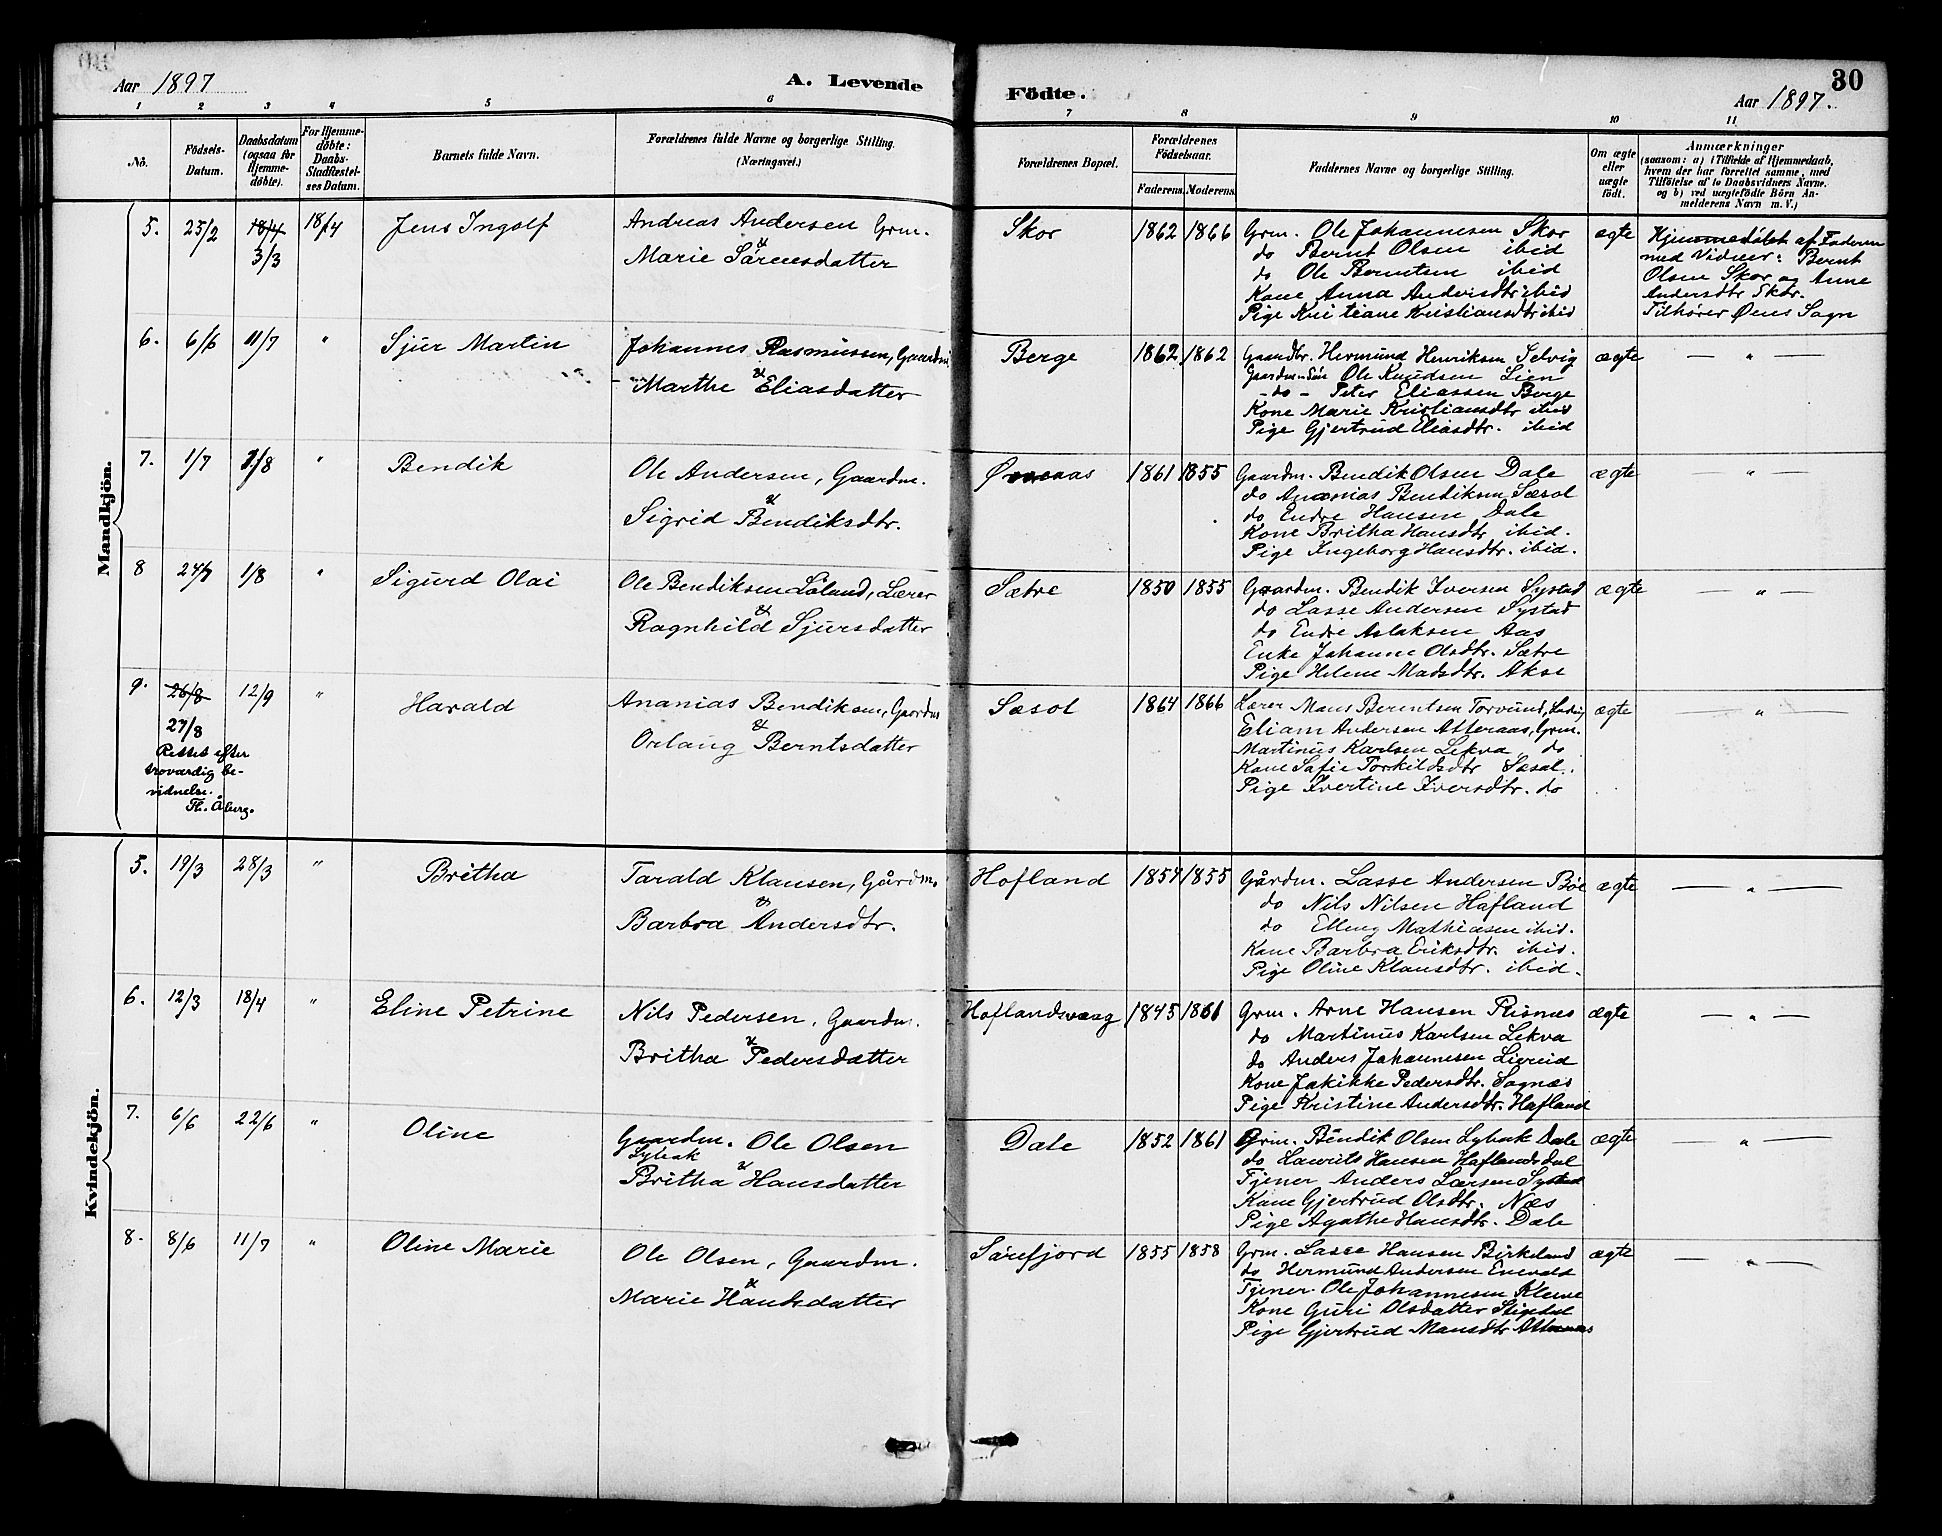 Aar 1897
A. Levende Födte.
Aar 1897.
30
1 2 3 4 5 6 7 8 9 10 11
No.
Födsels-Datum.
Daabsdatum (ogsaa for Hjemme-døbte).
For Hjemme-døbte: Daabs-Stadfæstel-ses Datum.
Barnets fulde Navn.
Forældrenes fulde Navne og borgerlige Stilling. (Næringsvei.)
Forældrenes Bopæl.
Forældrenes Födselsaar.
Faderens. Moderens.
Faddernes Navne og borgerlige Stilling.
Om ægte eller uægte födt.
Anmærkninger
(saasom: a) i Tilfælde af Hjemmedaab,
hvem der har forrettet samme, med
Tilföielse af to Daabsvidners Navne.
og b) ved uægtefödte Börn An-
melderens Navn m. V.)
Mandkjön.
5. 25/2 18/4 18/4 Jens Ingolf
3/3
Andreas Andersen Grm.
&
Marie Sørensdatter
Skor 1862 1866
Grm. Ole Johannesen Skor
do Bernt Olsen ibid
do Ole Berntsen ibid
Kone Anna Andersdtr ibid
Pige Kristiane Kristiansdtr ibid
ægte
Hjemmedøbt af Faderen
med Vidner: Bernt
Olsen Skor og Anne
Andersdtr Skor.
Tilhører Øens Sogn
6. 6/6 11/7 " Sjur Martin
Johannes Rasmussen, Gaardm.
&
Marthe Eliasdatter
Berge 1862 1862
Gaardbr. Hermund Henriksen Selvig
Gaardm.Søn Ole Knudsen Lien
-do- Peter Eliassen Berge
Kone Marie Kristiansdtr ibid
Pige Gjertrud Eliasdtr. ibid
ægte — " —
7. 1/7 1/8 " Bendik
Ole Andersen, Gaardm.
&
Sigrid Bendiksdtr.
1861 1855
Gaardm. Bendik Olsen Dale
do Ananias Bendiksen Sæsol
do Endre Hansen Dale
Kone Britha Hansdtr ibid.
Pige Ingeborg Hansdtr. ibid.
ægte " —
8 24/7 1/8 " Sigurd Olai
Ole Bendiksen Löland, Lærer
&
Ragnhild Sjursdatter
Sætre 1850 1855
Gaardm. Bendik Iversen Systad
do Lasse Andersen Systad
do Endre Aslaksen Aas
Enke Johanne Olsdtr. Sætre
Pige Helene Madsdtr. Akse
ægte — " —
9. 26/8 12/9 " Harald
27/8
Rettet efter
troværdig be-
vidnelse.
Th. Åberg.
Ananias Bendiksen, Gaardm
&
Orlaug Berntsdatter
Sæsol 1864 1866
Lærer Mons Berentsen Torvund,
Eliam Andersen Atteraas, Grm.
Martinus Karlsen Lekva do
Kone Sofie Torkildsdtr Sæsol.
Pige Ivertine Iversdtr. do
ægte — " —
Kvindekjön.
5. 19/3 28/3 " Britha
Tarald Klausen, Gårdm.
&
Barbra Andersdtr.
Hofland 1854 1855
Gårdm. Lasse Andersen Böe
do Nils Nilsen Hafland
do Elling Mathiasen ibid.
Kone Barbra Eriksdtr. ibid.
Pige Oline Klausdtr. ibid.
ægte — " —
6. 12/3 18/4 " Eline Petrine
Nils Pedersen, Gaardm.
&
Britha Pedersdatter
Hoflandsvaag 1845 1861
Grm. Arne Hansen Risnes
do Martinus Karlsen Lekva
do Anders Johannesen Liereid
Kone Jakikke Pedersdtr. Sognæs
Pige Kristine Andersdtr. Hafland
ægte — " —
7. 6/6 22/6 " Oline
Gaardm. Ole Olsen
Lyhak &
Britha Hansdatter
Dale 1852 1861
Grm. Bendik Olsen Lyhak Dale
do Laurits Hansen Haflandsdal
Tjener Anders Larsen Systad
Kone Gjertrud Olsdtr. Næs
Pige Agathe Hansdtr. Dale
ægte — " —
8. 8/6 11/7 " Oline Marie
Ole Olsen, Gaardm.
&
Marie Hansdatter
Sörefjord 1855 1858
Grm. Lasse Hansen Birkeland
do Hermund Andersen Enevald
Tjener Ole Johannesen Kleive
Kone Guri Olsdatter
Pige Gjertrud Monsdtr Atteraas
ægte — " —